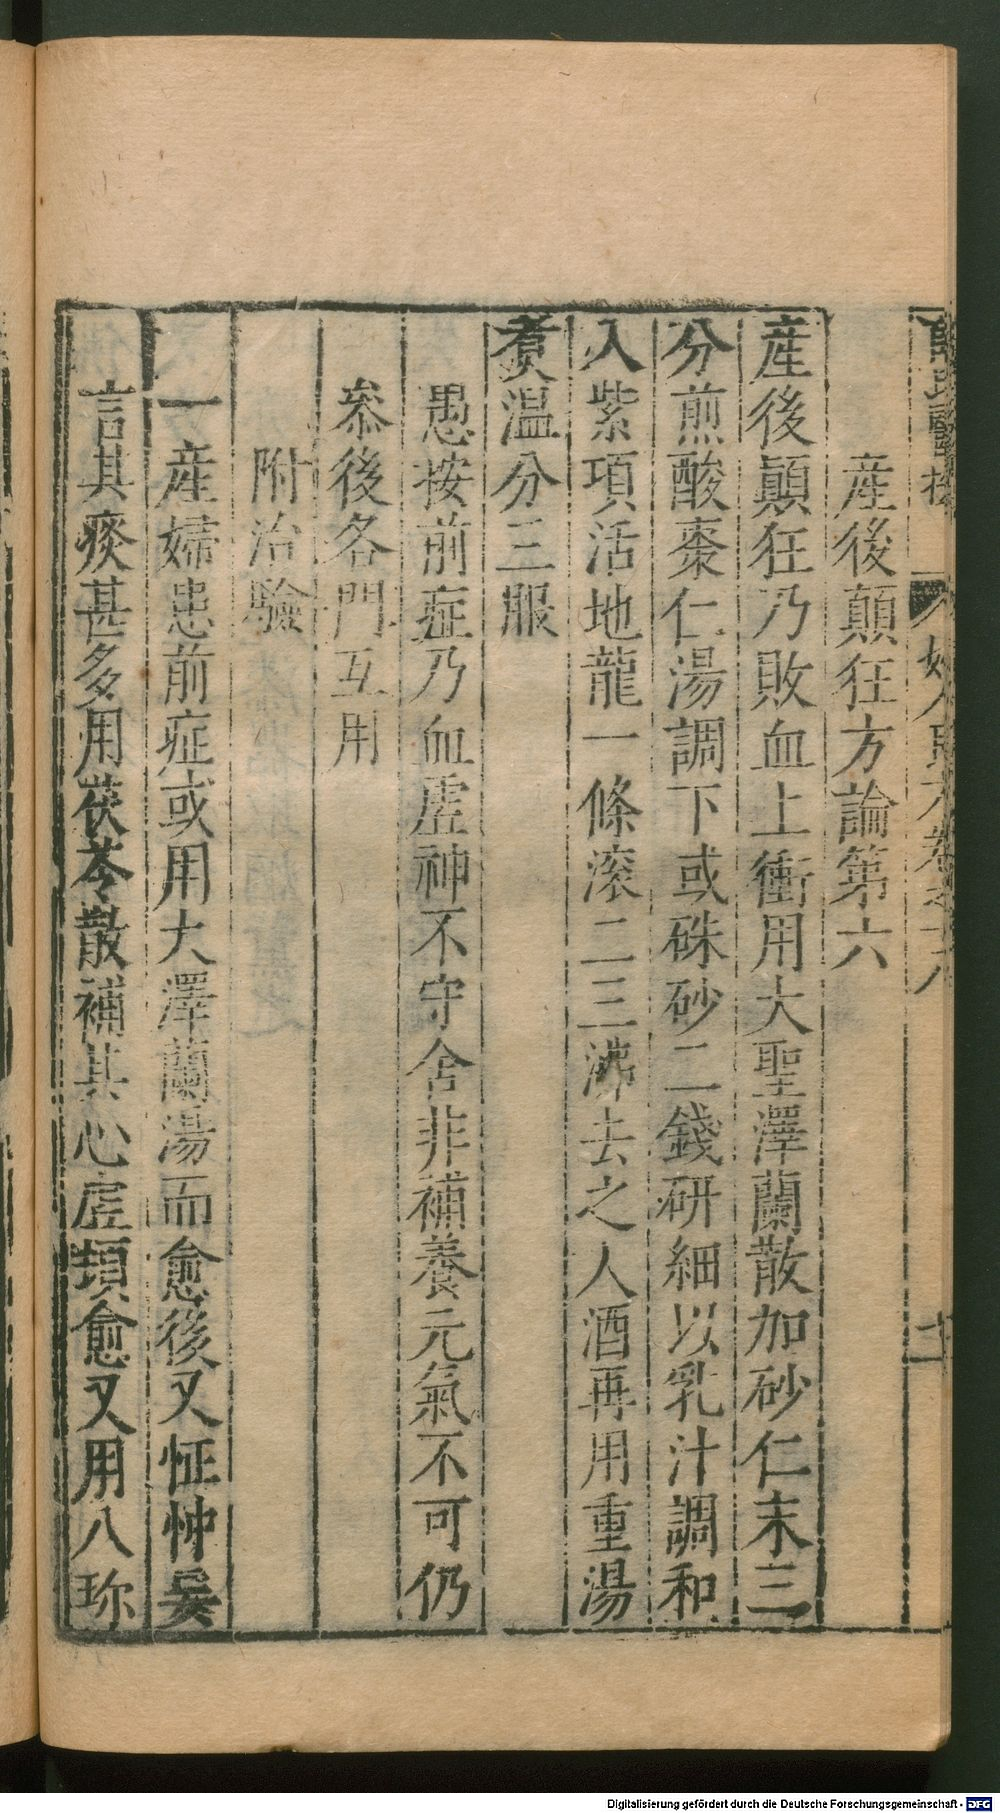 薛氏醫按
婦人良方卷之十八
十二
產後顛狂方論第六
產後顛狂乃敗血上衝用大聖澤蘭散加砂仁末三
分煎酸棗仁湯調下或硃砂二錢研細以乳汁調和
入紫項活地龍一條滚二三沸去之人酒再用重湯
煑温分三服
愚按前症乃血虛神不守舍非補養元氣不可仍
叅後各門互用
附治驗
一產婦患前症或用大澤蘭湯而愈後又怔忡妄
言其痰甚多用茯苓散補其心虛頓愈又用八珎
Digitalisierung gefördert durch die Deutsche Forschungsgemeinschaft - DFG